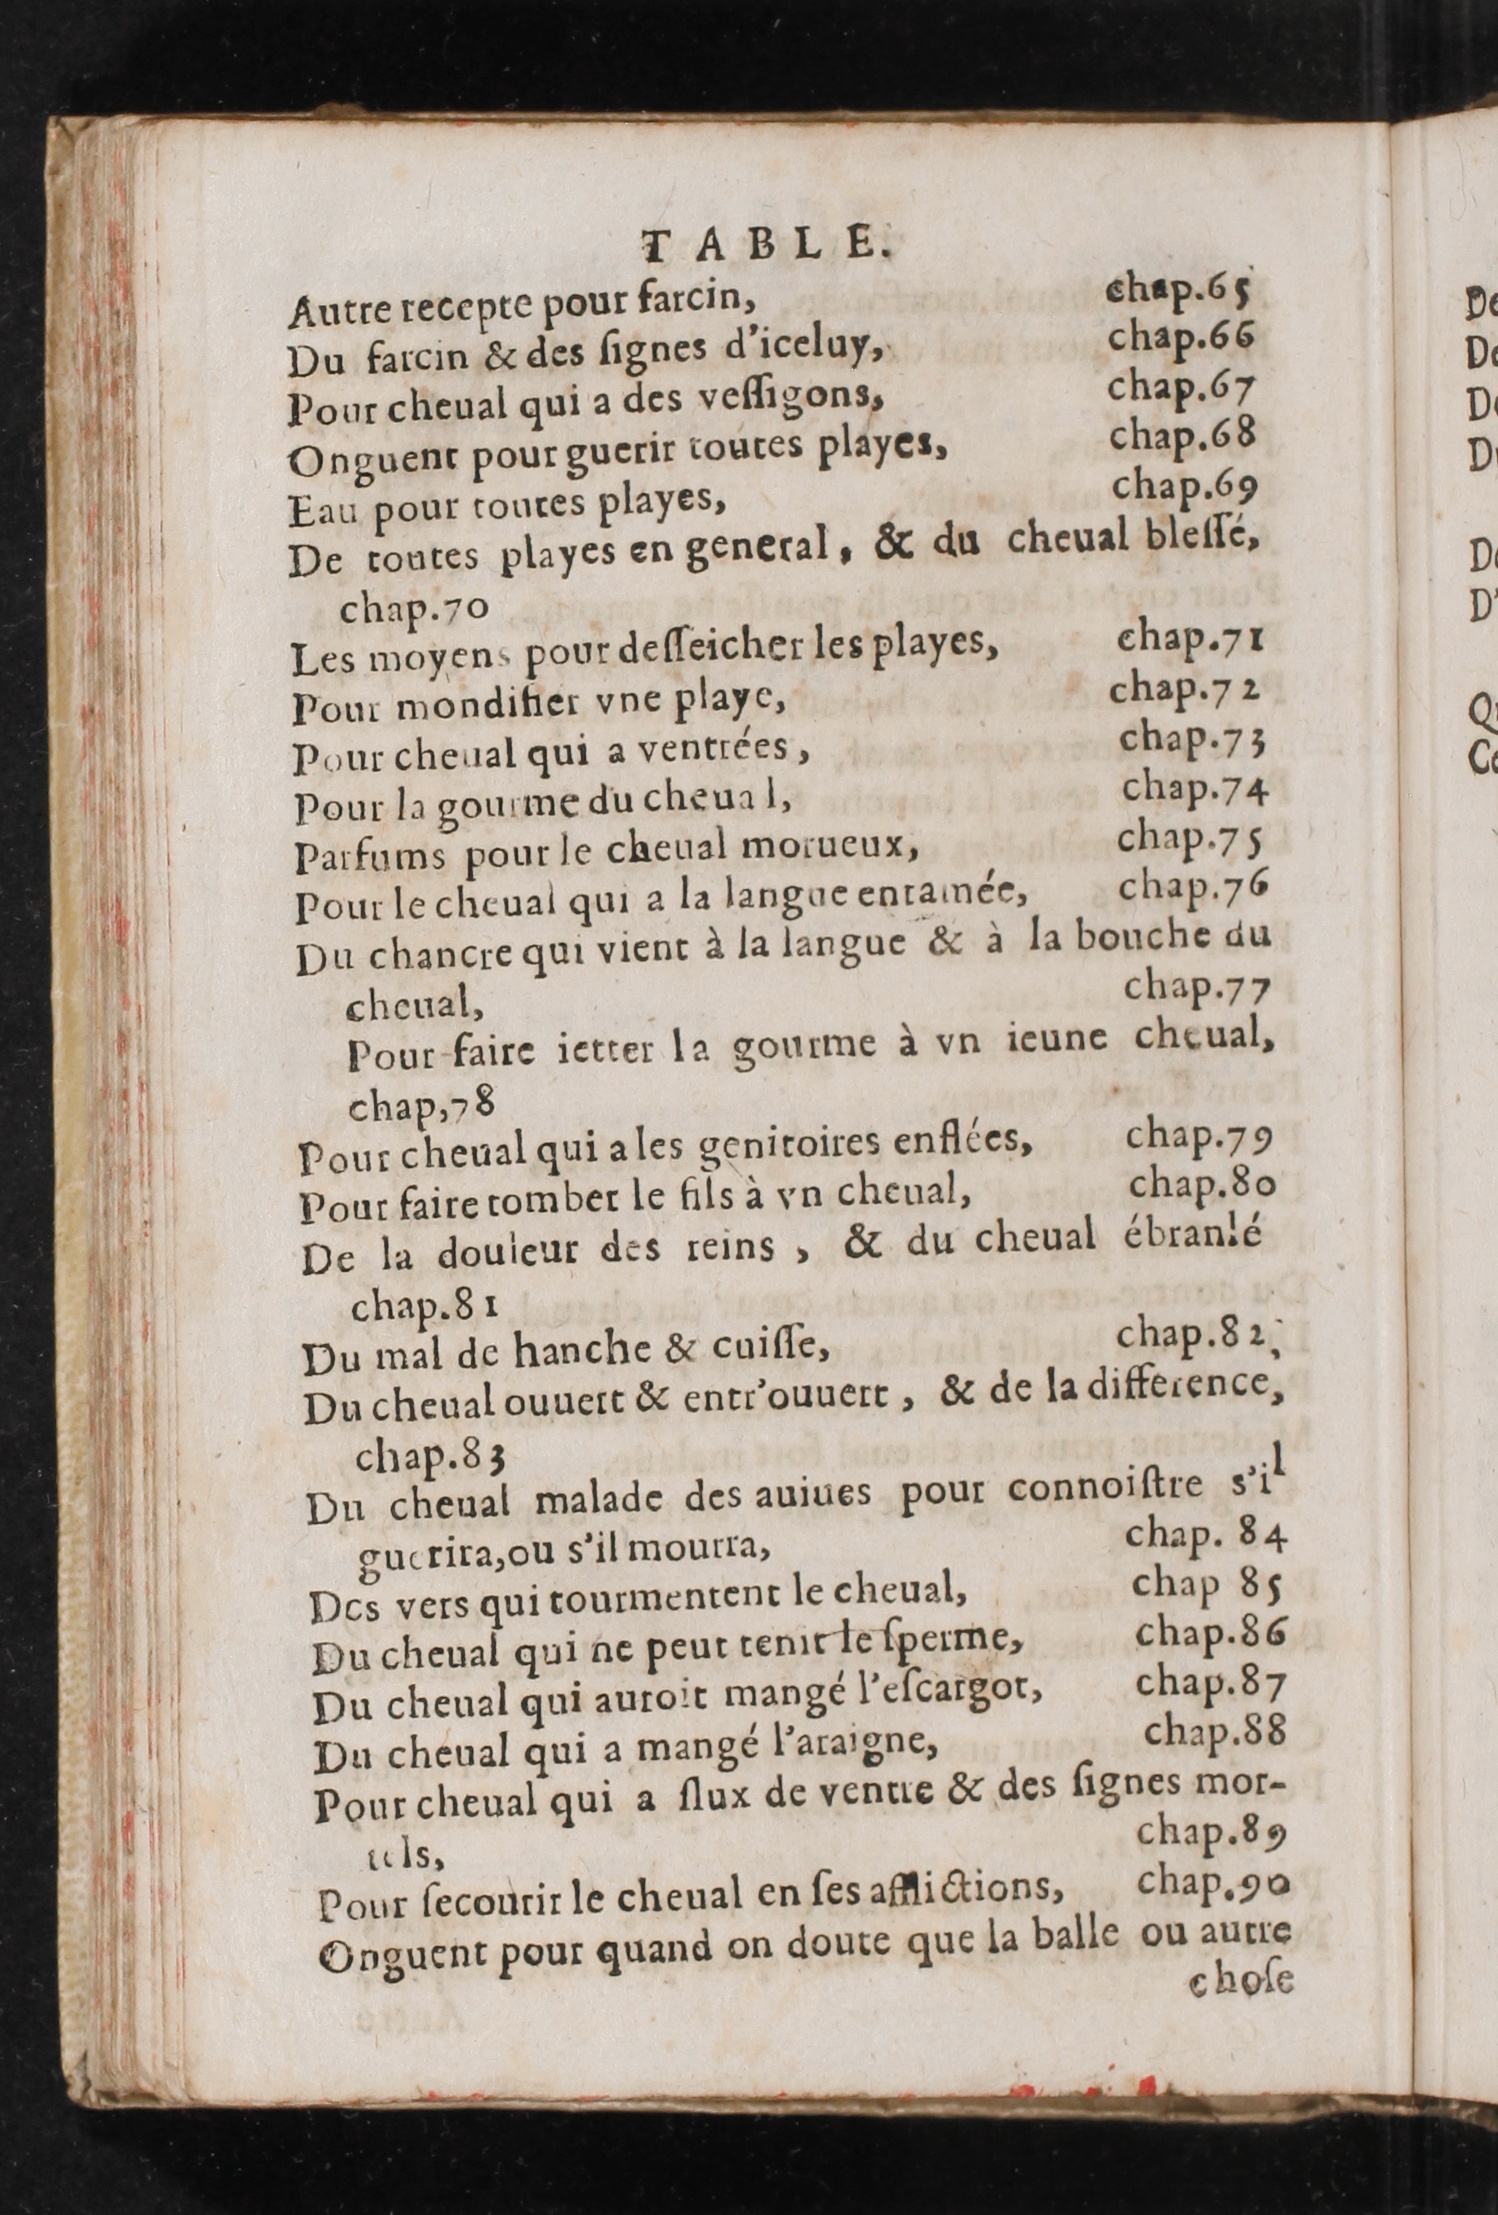 TABLE.
Autre recepte pour farcin, chap.65
Du farcin & des ſignes d'iceluy, chap.66
Pour cheual qui a des veſſigons, chap.67
Onguent pour guerir toutes playes, chap.68
Eau pour toutes playes, chap.69
De toutes playes en general, & du cheual bleſſé,
chap.70
Les moyens pour deſſeicher les playes, chap.71
Pour mondifier vne playe, chap.72
Pour cheual qui a ventrées, chap.73
Pour la gourme du cheual, chap.74
Parfums pour le cheual morueux, chap.75
Pour le cheual qui a la langue entamée, chap.76
Du chancre qui vient à la langue & à la bouche du
cheual, chap.77
Pour faire ietter la gourme à vn ieune cheual,
chap,78
Pour cheual qui a les genitoires enflées, chap.79
Pour faire tomber le fils à vn cheual, chap.80
De la douleur des reins, & du cheual ébranlé
chap.81
Du mal de hanche & cuiſſe, chap.82,
Du cheual ouuert & entr'ouuert, & de la difference,
chap.83
Du cheual malade des auiues pour connoiſtre s'il
guerira,ou s'il mourra, chap. 84
Des vers qui tourmentent le cheual, chap 85
Du cheual qui ne peut tenir le ſperme, chap.86
Du cheual qui auroit mangé l'eſcargot, chap.87
Du cheual qui a mangé l'araigne, chap.88
Pour cheual qui a flux de ventre & des ſignes mor-
tels, chap.89
Pour ſecourir le cheual en ſes afflictions, chap.90
Onguent pour quand on doute que la balle ou autre
choſe